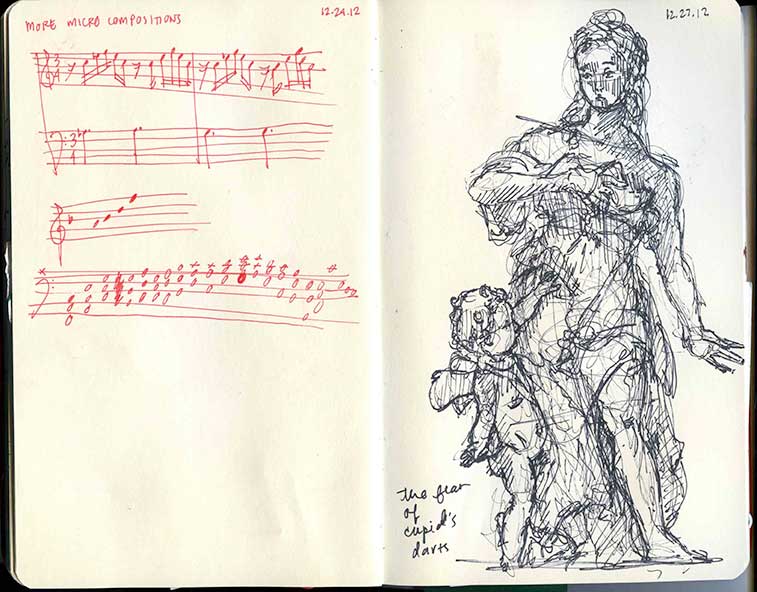 MORE MICRO COMPOSITIONS
12.24.12
3
4
3
4
12.27.12
the fear
of
cupid's
darts